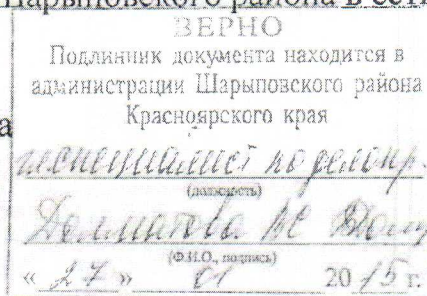 Шарыповского района в сети
ВЕРНО
Подлинник документа находится в
администрации Шарыповского района
Красноярского края
а
по делопр.
(должность)
Долматова
(Ф.И.О., подпись)
« 27 » 01 20 15 г.